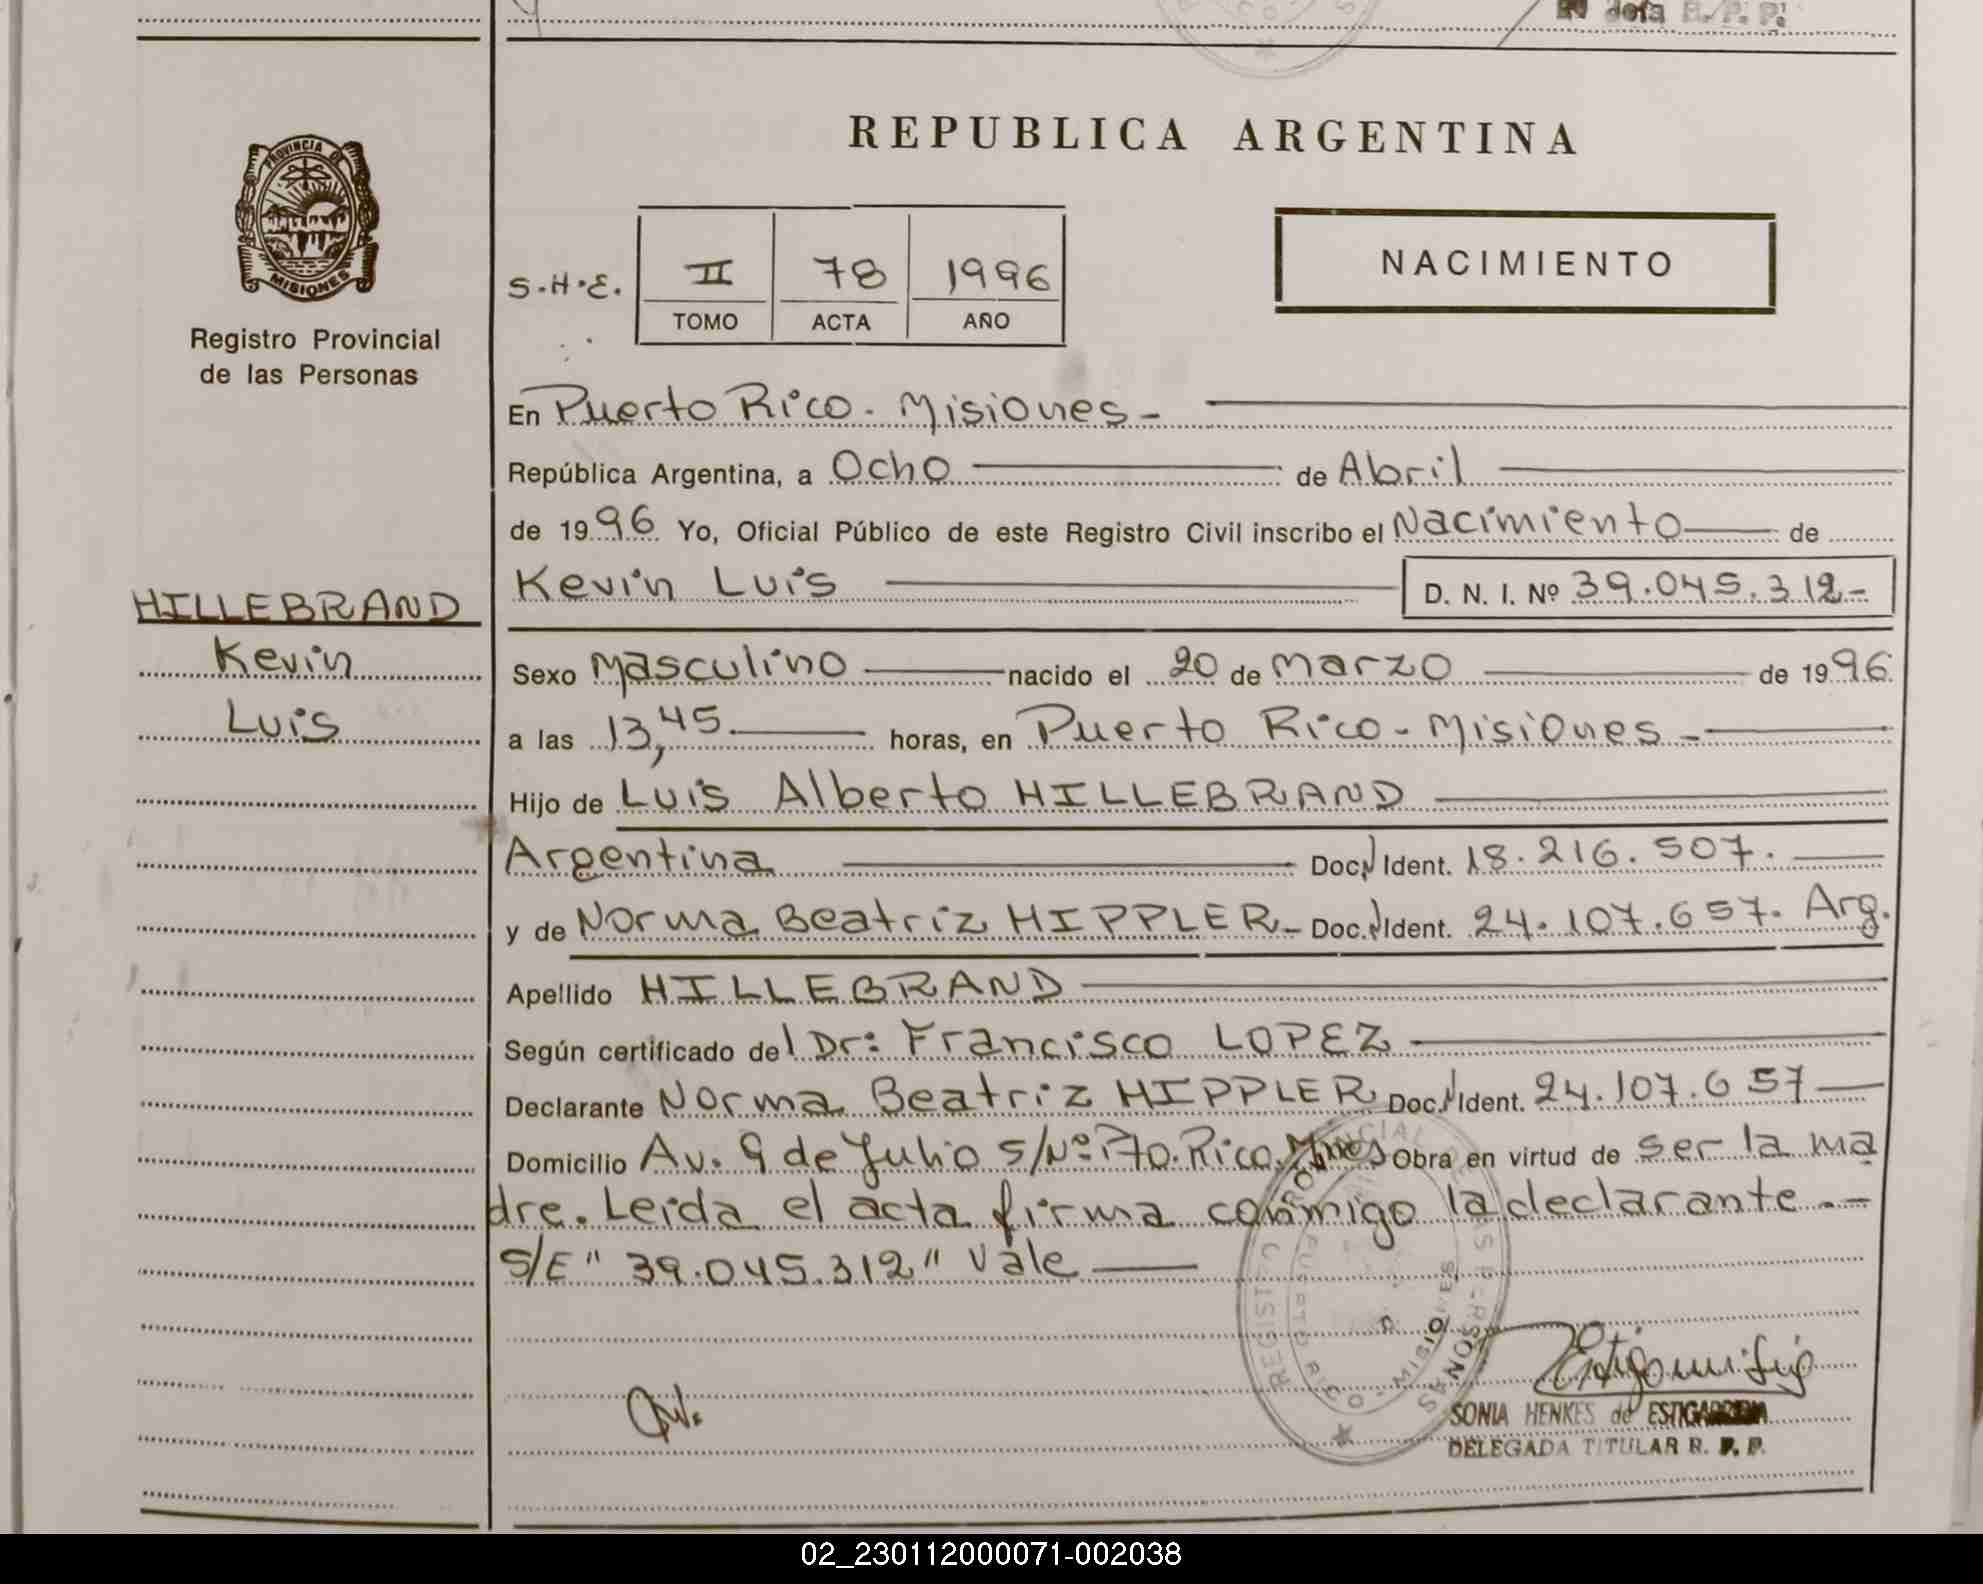 Dela R. P. P.
PROVINCIA DE
MISIONES
Registro Provincial
de las Personas
HILLEBRAND
Kevin
Luis
REPUBLICA ARGENTINA
S.H.E. II 78 1996
TOMO ACTA AÑO
NACIMIENTO
En Puerto Rico - Misiones -
República Argentina, a Ocho de Abril
de 1996 Yo, Oficial Público de este Registro Civil inscribo el Nacimiento de
Kevin Luis D. N. I. Nº 39.045.312-
Sexo Masculino nacido el 20 de Marzo de 1996
a las 13,45 horas, en Puerto Rico - Misiones -
Hijo de Luis Alberto HILLEBRAND
Argentina Doc. Ident. 18.216.507.
y de Norma Beatriz HIPPLER - Doc. Ident. 24.107.657. Arg.
Apellido HILLEBRAND
Según certificado del Dr: Francisco LOPEZ
Declarante Norma Beatriz HIPPLER Doc. Ident. 24.107.657
Domicilio Av. 9 de Julio S/Nº Pto. Rico. Mnes Obra en virtud de ser la ma
dre. Leida el acta firma conmigo la declarante.-
S/E " 39.045.312" Vale
REGISTRO PROVINCIAL DE LAS PERSONAS
PUERTO RICO - MISIONES
SONIA HENKES de ESTIGARRIBIA
DELEGADA TITULAR R. P. P.
02_230112000071-002038